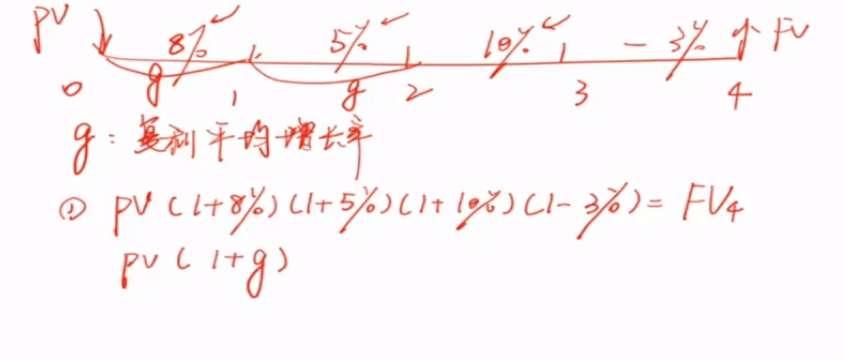 PV 8% 5% 10% -3% FV
g g
0 1 2 3 4
g: 复利平均增长率
① PV(1+8%)(1+5%)(1+10%)(1-3%)= FV4
PV(1+g)